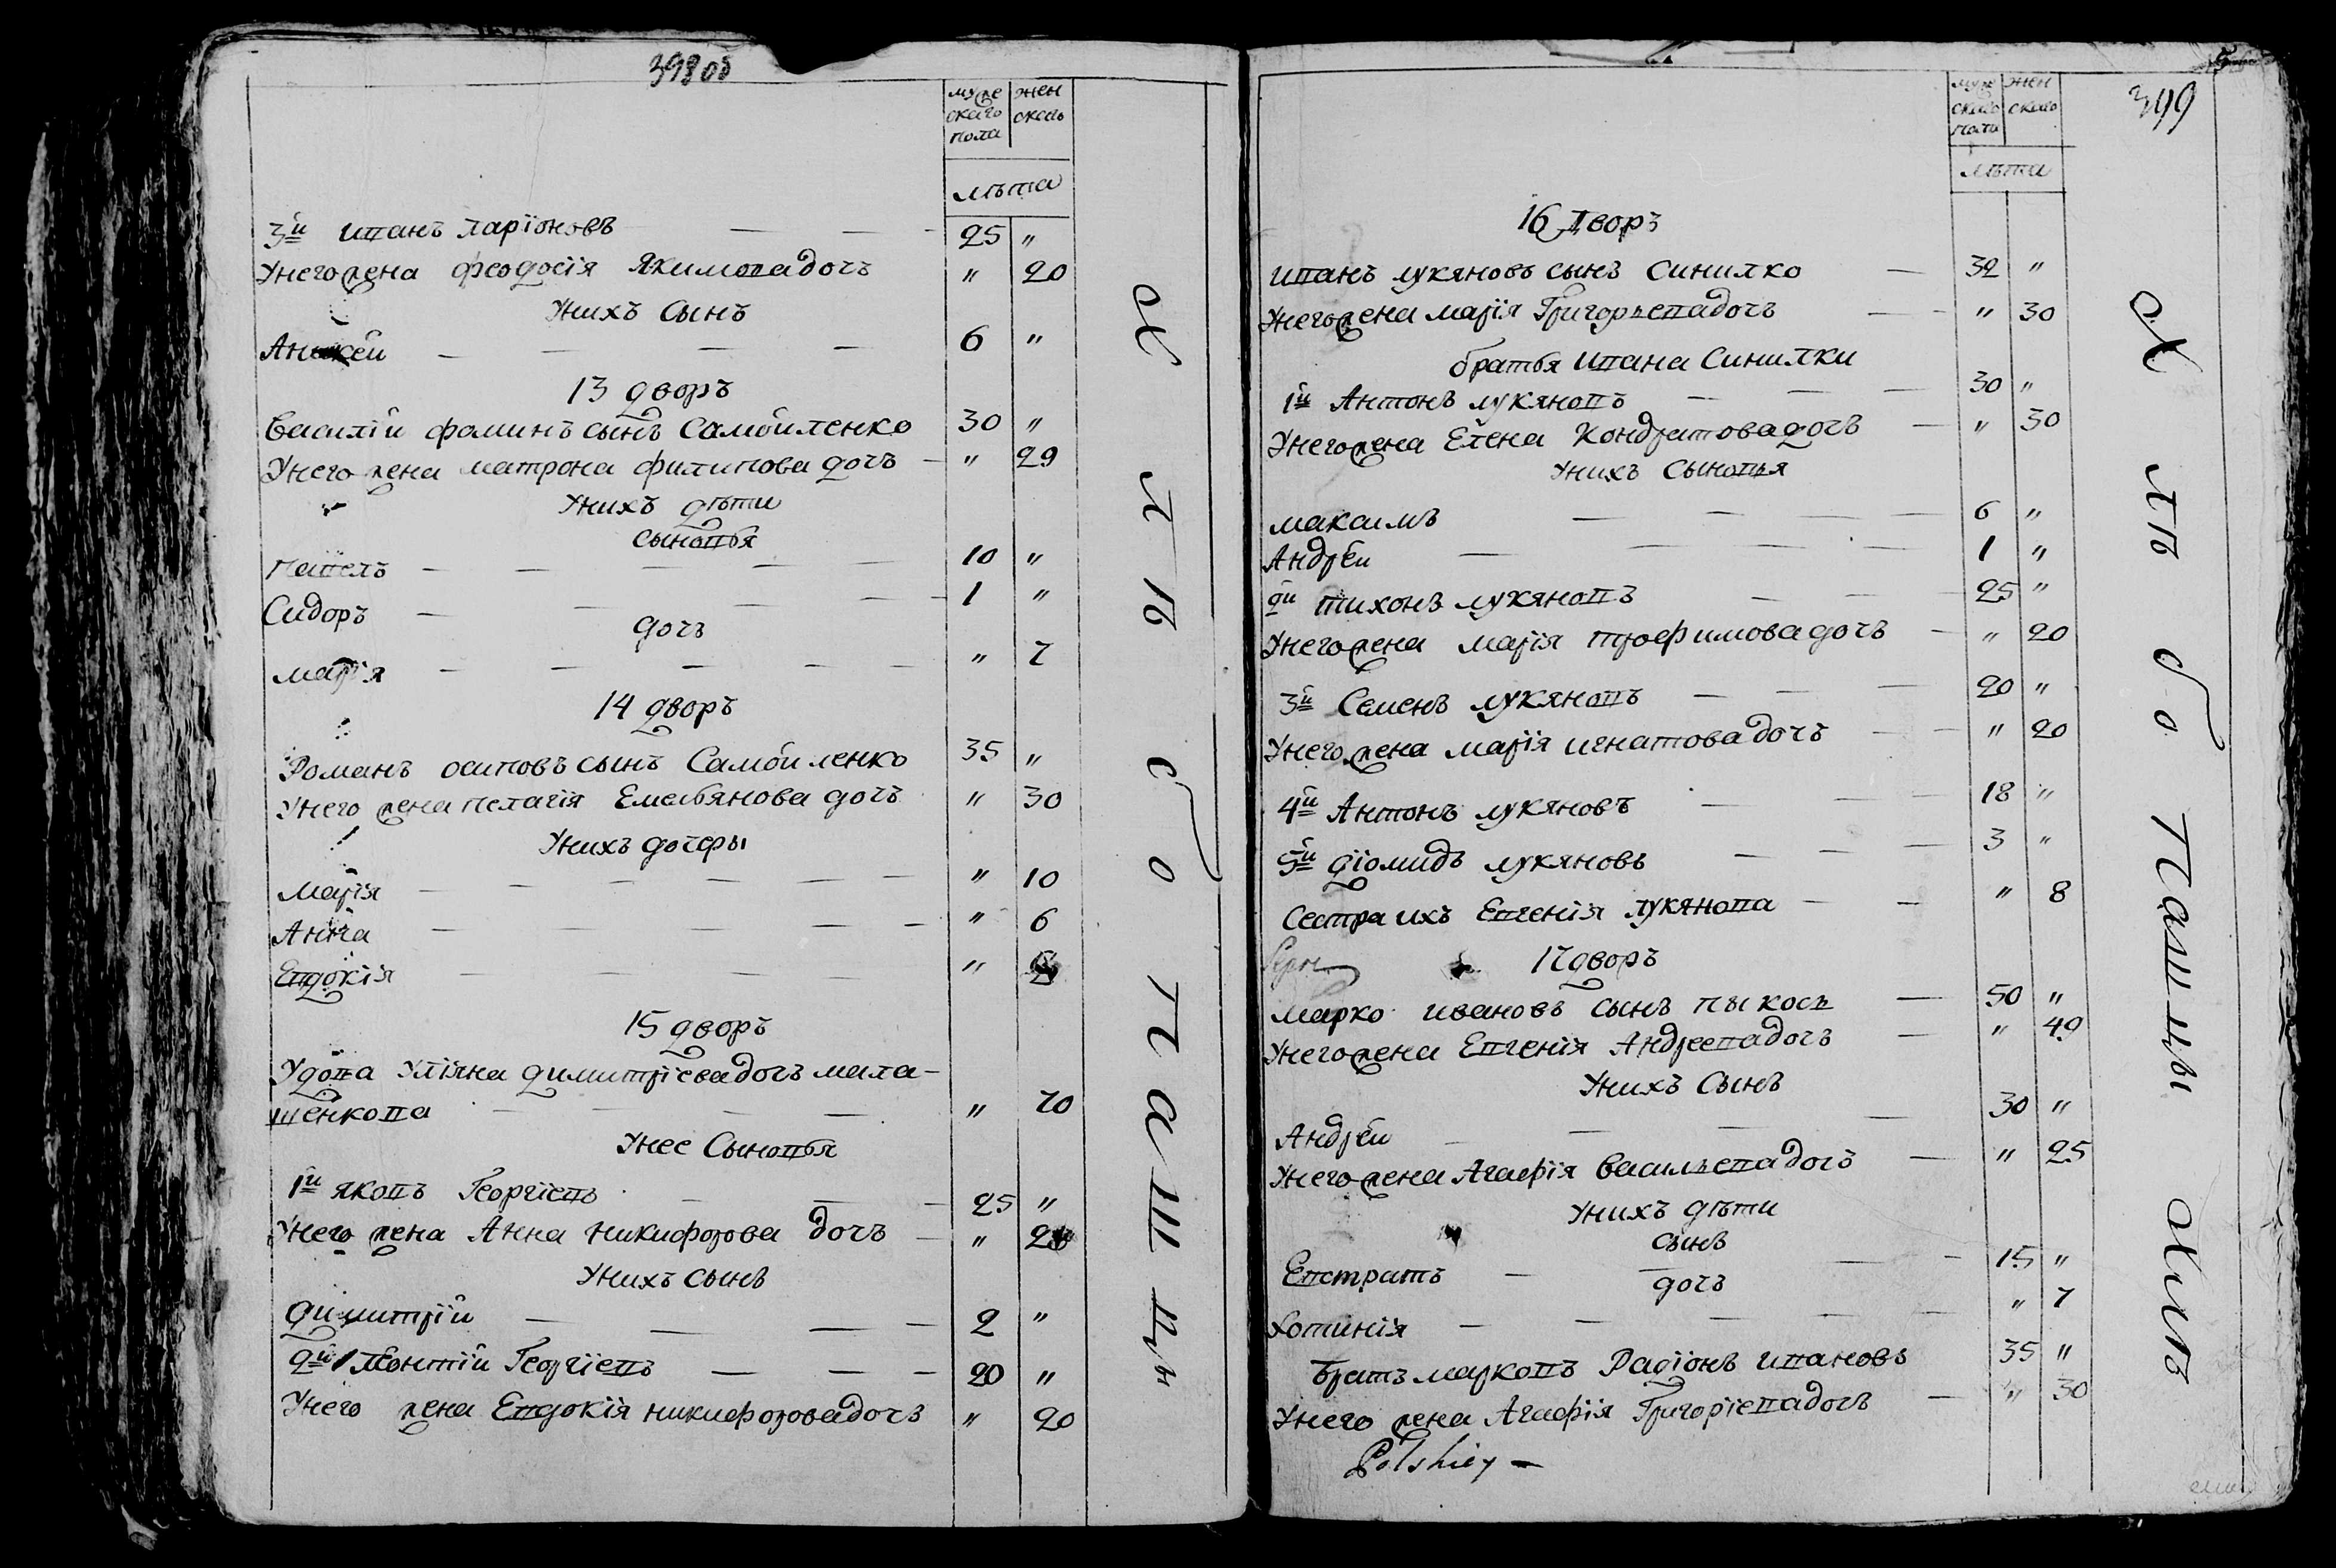 398 об
муже
скаго
пола
жен
скаго
лѣта
3й Иванъ Ларіоновъ 25 "
Унего жена Феодосія Якимовадочъ " 20
Унихъ сынъ
6 "
13 дворъ
Василій Фоминъ сынъ Самойленко 30 "
Унего жена Матрона Филипова дочъ " 29
Унихъ дѣти
сыновья
Павелъ 10 "
Сидоръ 1 "
дочъ
Марія " 7
14 дворъ
Романъ Осиповъ сынъ Самойленко 35 "
Унего жена Пелагія Емельянова дочъ " 30
Унихъ дочеры
Марія " 10
Анна " 6
Евдокія "
15 дворъ
Удова Уліяна Димитріевадочъ Мала-
шенкова " 70
Унее сыновья
1й Яковъ Георгіевъ 25 "
Унего жена Анна Никифорова дочъ "
Унихъ сынъ
Димитрій 2 "
2й Леонтій Георгіевъ 20 "
Унего жена Евдокія Никифоровадочъ " 20
хлѣбопашцы
399
муже
скаго
пола
жен
скаго
лѣта
16 дворъ
Иванъ Лукяновъ сынъ Синилко 32 "
Унегожена Марія Григорьевадочъ " 30
братья Ивана Синилки
1й Антонъ Лукяновъ 30 "
Унегожена Елена Кондратовадочъ " 30
Унихъ сыновья
Максимъ 6 "
Андрей 1 "
2й Тихонъ Лукяновъ 25 "
Унегожена Марія Трофимовадочъ " 20
3й Семенъ Лукяновъ 20 "
Унего жена Марія Игнатовадочъ " 20
4й Антонъ Лукяновъ 18 "
5й Діомидъ Лукяновъ 3 "
Сестра ихъ Евгенія Лукянова " 8
17 дворъ
Марко Ивановъ сынъ 50 "
Унегожена Евгенія Андреевадочъ " 49
Унихъ сынъ
Андрей 30 "
Унегожена Агафія Васильевадочъ " 25
Унихъ дѣти
сынъ
Евстратъ 15 "
дочъ
Хотинія " 7
Братъ Марковъ Радіонъ Ивановъ 35 "
Унего жена Агафія Григоріевадочъ " 30
хлѣбопашцы